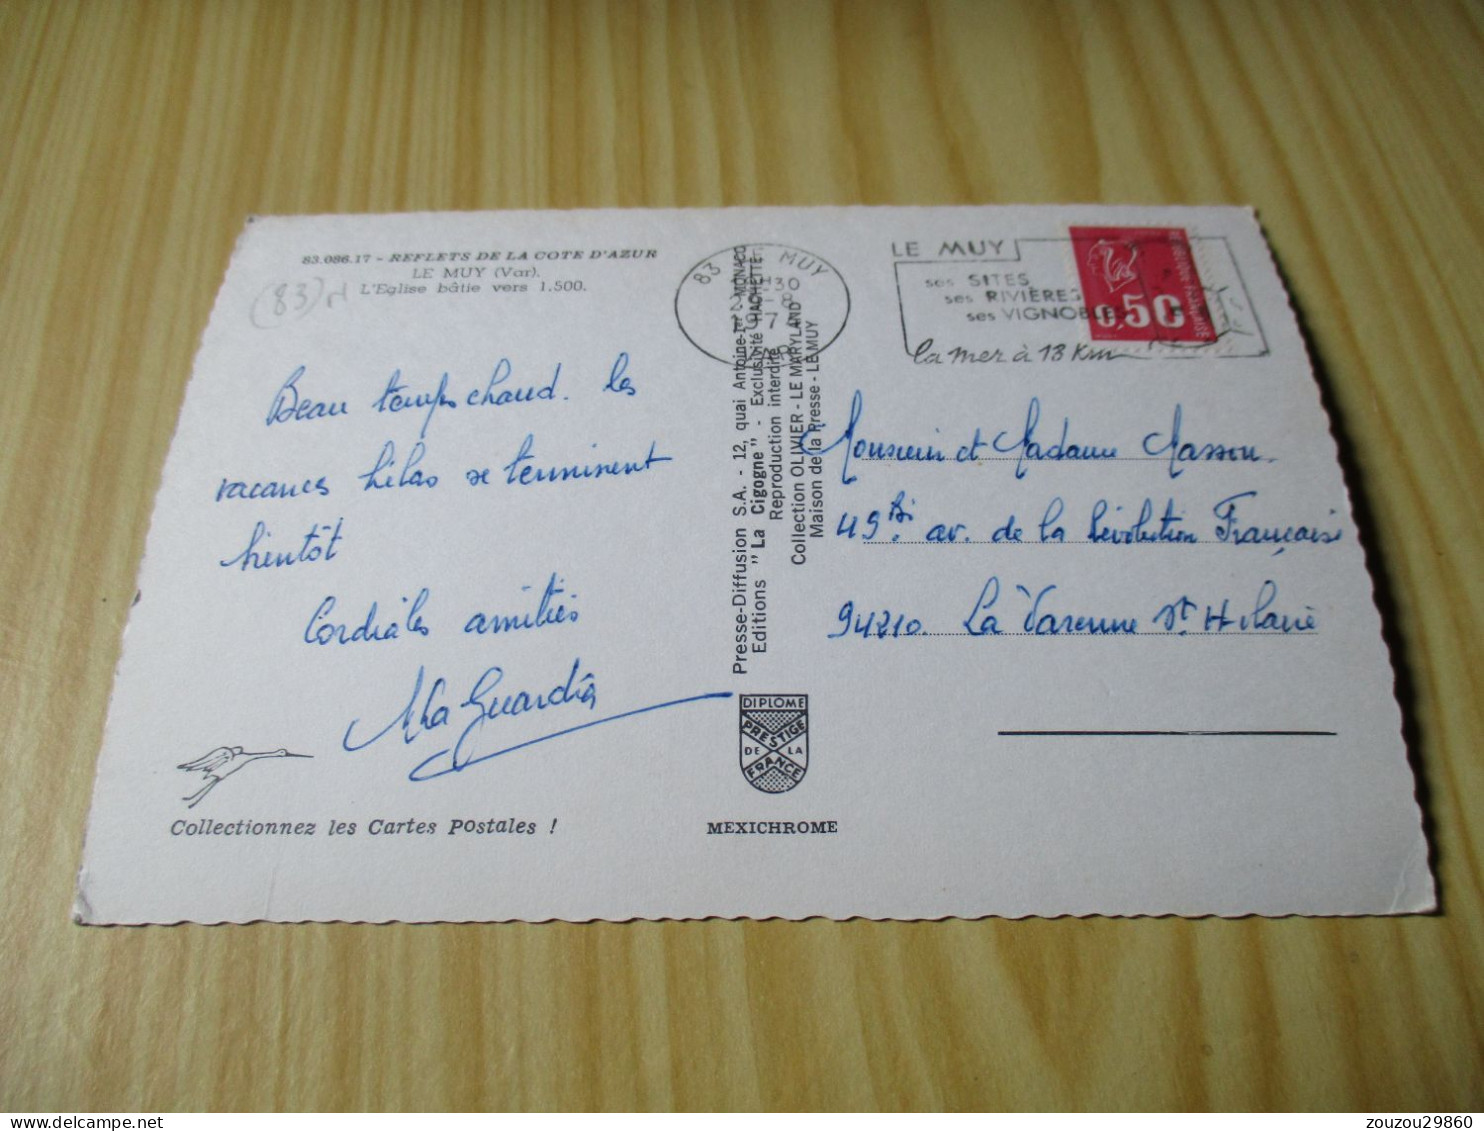 83.086.17 - REFLETS DE LA COTE D'AZUR
LE MUY (Var).
L'Eglise bâtie vers 1.500.
(83)
Beau temps chaud. les
vacances hélas se terminent
bientôt
Cordiales amitiés
Guardia
Collectionnez les Cartes Postales !
Presse-Diffusion S.A. - 12, quai Antoine-1er - MONACO
Editions "La Cigogne" - Exclusivité HACHETTE
Reproduction interdite
Collection OLIVIER - LE MARYLAND
Maison de la Presse - LE MUY
DIPLOME
PRESTIGE
DE LA
FRANCE
MEXICHROME
83 LE MUY
LE MUY
ses SITES
ses RIVIÈRES
ses VIGNOBLES
la mer à 13 Km
0,50
Monsieur et Madame Masson.
49 Bis av. de la Révolution Française
94210. La Varenne St Hilaire
zouzou29860